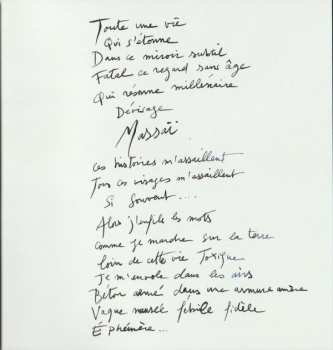 Toute une vie
Qui s'étonne
Dans ce miroir subtil
Fatal ce regard sans âge
Qui résonne millénaire
Dévisage
Massaï
Ces histoires m'assaillent
Tous ces visages m'assaillent
Si souvent....
Alors j'enfile les mots
comme je marche sur la terre
loin de cette vie Toxique
Je m'envole dans les airs
Béton armé dans une armure
Vague fébrile fidèle
Éphémère...